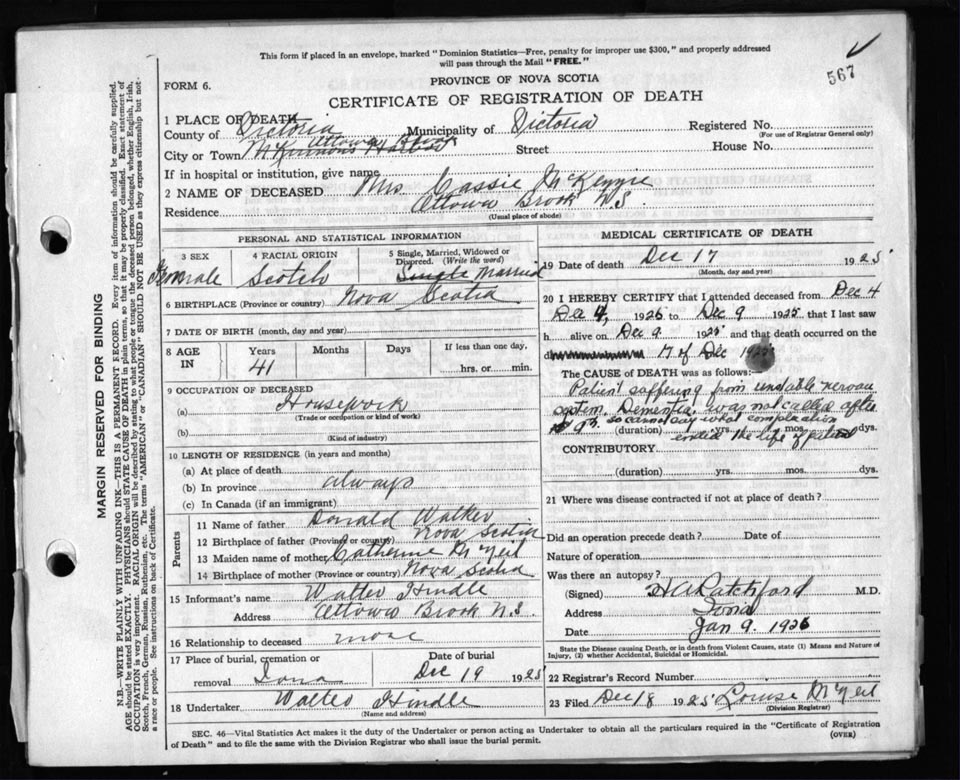 This form if placed in an envelope, marked "Dominion Statistics—Free, penalty for improper use $300," and properly addressed
will pass through the Mail "FREE."
567
PROVINCE OF NOVA SCOTIA
FORM 6.
CERTIFICATE OF REGISTRATION OF DEATH
1 PLACE OF DEATH
County of Victoria Municipality of Victoria Registered No.
(For use of Registrar General only)
Ottowa Brook
City or Town McKinnons Harbour Street House No.
If in hospital or institution, give name
2 NAME OF DECEASED Mrs Cassie McKenzie
Residence Ottowa Brook N.S.
(Usual place of abode)
PERSONAL AND STATISTICAL INFORMATION
3 SEX 4 RACIAL ORIGIN 5 Single, Married, Widowed or
Divorced. (Write the word)
Female Scotch Single Married
6 BIRTHPLACE (Province or country) Nova Scotia
7 DATE OF BIRTH (month, day and year)
8 AGE IN Years Months Days If less than one day,
41 hrs. or min.
9 OCCUPATION OF DECEASED
(a) Housework
(Trade or occupation or kind of work)
(b)
(Kind of industry)
10 LENGTH OF RESIDENCE (in years and months)
(a) At place of death
(b) In province always
(c) In Canada (if an immigrant)
Parents
11 Name of father Donald Walker
12 Birthplace of father (Province or country) Nova Scotia
13 Maiden name of mother Catherine McNeil
14 Birthplace of mother (Province or country) Nova Scotia
15 Informant's name Walter Hindle
Address Ottowa Brook N.S.
16 Relationship to deceased none
17 Place of burial, cremation or Date of burial
removal Iona Dec 19 1925
18 Undertaker Walter Hindle
(Name and address)
MEDICAL CERTIFICATE OF DEATH
19 Date of death Dec 17 1925
(Month, day and year)
20 I HEREBY CERTIFY that I attended deceased from Dec 4
Dec 4, 1925 to Dec 9 1925 that I last saw
h alive on Dec 9 1925 and that death occurred on the
17 of Dec 1925
The CAUSE OF DEATH was as follows:
Patient suffering from unstable nervous
system. Dementia. was not called after
9th so cannot say what complication
(duration) yrs. mos. dys.
ended the life of patient
CONTRIBUTORY
(duration) yrs. mos. dys.
21 Where was disease contracted if not at place of death?
Did an operation precede death? Date of
Nature of operation
Was there an autopsy?
(Signed) Ratchford M.D.
Address Iona
Date Jan 9. 1926
State the Disease causing Death, or in death from Violent Causes, state (1) Means and Nature of
Injury, (2) whether Accidental, Suicidal or Homicidal.
22 Registrar's Record Number
23 Filed Dec 18 1925 Louise McNeil
(Division Registrar)
SEC. 46—Vital Statistics Act makes it the duty of the Undertaker or person acting as Undertaker to obtain all the particulars required in the "Certificate of Registration
of Death" and to file the same with the Division Registrar who shall issue the burial permit. (OVER)
MARGIN RESERVED FOR BINDING
N.B.—WRITE PLAINLY WITH UNFADING INK—THIS IS A PERMANENT RECORD. Every item of information should be carefully supplied.
AGE should be stated EXACTLY. PHYSICIANS should STATE CAUSE OF DEATH in plain terms, so that it may be properly classified. Exact statement of
OCCUPATION is very important. RACIAL ORIGIN will be described by stating to what people or tongue the deceased person belonged, whether English, Irish,
Scotch, French, German, Russian, Ruthenian, etc. The terms "AMERICAN" or "CANADIAN" SHOULD NOT BE USED as they express citizenship but not
a race or people. See instructions on back of Certificate.